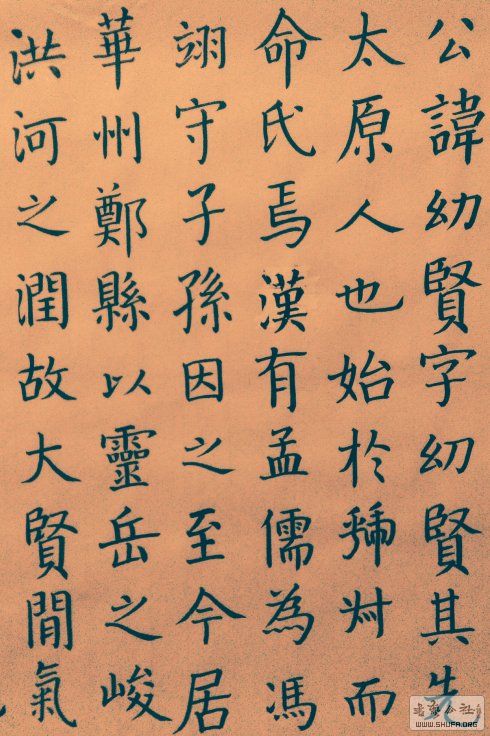 公諱幼賢字幼賢其先
太原人也始於虢叔而
命氏焉漢有孟儒為馮
翊守子孫因之至今居
華州鄭縣以靈岳之峻
洪河之潤故大賢間氣
WWW.SHUFA.ORG